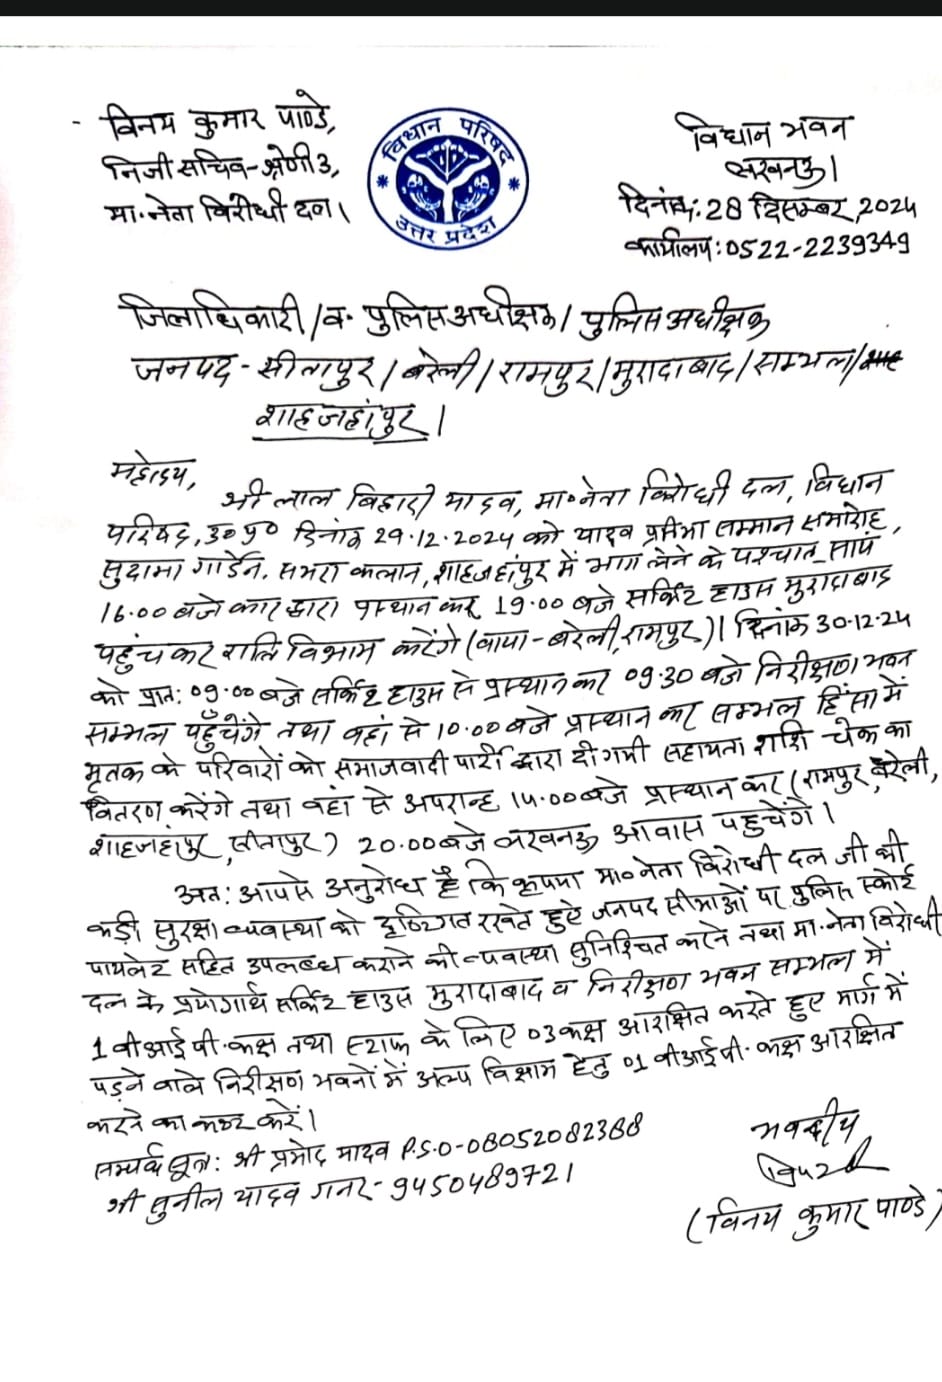 - विनय कुमार पाण्डे,
निजी सचिव-श्रेणी 3,
मा. नेता विरोधी दल।
विधान परिषद
उत्तर प्रदेश
विधान भवन
लखनऊ।
दिनांक: 28 दिसम्बर, 2024
कार्यालय: 0522-2239349
जिलाधिकारी/व. पुलिस अधीक्षक/पुलिस अधीक्षक
जनपद - सीतापुर/बरेली/रामपुर/मुरादाबाद/सम्भल/
शाहजहांपुर।
महोदय,
श्री लाल बिहारी यादव, मा० नेता विरोधी दल, विधान
परिषद, उ०प्र० दिनांक 29.12.2024 को यादव प्रतिभा सम्मान समारोह,
सुदामा गार्डेन, कलान, शाहजहांपुर में भाग लेने के पश्चात सायं
16.00 बजे कार द्वारा प्रस्थान कर 19.00 बजे सर्किट हाउस मुरादाबाद
पहुंचकर रात्रि विश्राम करेंगे (वाया-बरेली, रामपुर)। दिनांक 30.12.24
को प्रात: 09.00 बजे सर्किट हाउस से प्रस्थान कर 09.30 बजे निरीक्षण भवन
सम्भल पहुँचेंगे तथा वहां से 10.00 बजे प्रस्थान कर सम्भल हिंसा में
मृतक के परिवारों को समाजवादी पार्टी द्वारा दी गयी सहायता राशि चेक का
वितरण करेंगे तथा वहां से अपरान्ह 14.00 बजे प्रस्थान कर (रामपुर, बरेली,
शाहजहांपुर, सीतापुर) 20.00 बजे लखनऊ आवास पहुचेंगे।
अत: आपसे अनुरोध है कि कृपया मा० नेता विरोधी दल जी की
कड़ी सुरक्षा व्यवस्था को दृष्टिगत रखते हुए जनपद सीमाओं पर पुलिस स्कोर्ट
पायलेट सहित उपलब्ध कराने की व्यवस्था सुनिश्चित करने तथा मा. नेता विरोधी
दल के प्रयोगार्थ सर्किट हाउस मुरादाबाद व निरीक्षण भवन सम्भल में
1 वीआईपी. कक्ष तथा स्टाफ के लिए 03 कक्ष आरक्षित करते हुए मार्ग में
पड़ने वाले निरीक्षण भवनों में अल्प विश्राम हेतु 01 वीआईपी. कक्ष आरक्षित
करने का कष्ट करें।
सम्पर्क सूत्र: श्री प्रमोद यादव P.S.O-08052082388
श्री सुनील यादव गनर- 9450489721
भवदीय
(विनय कुमार पाण्डे)